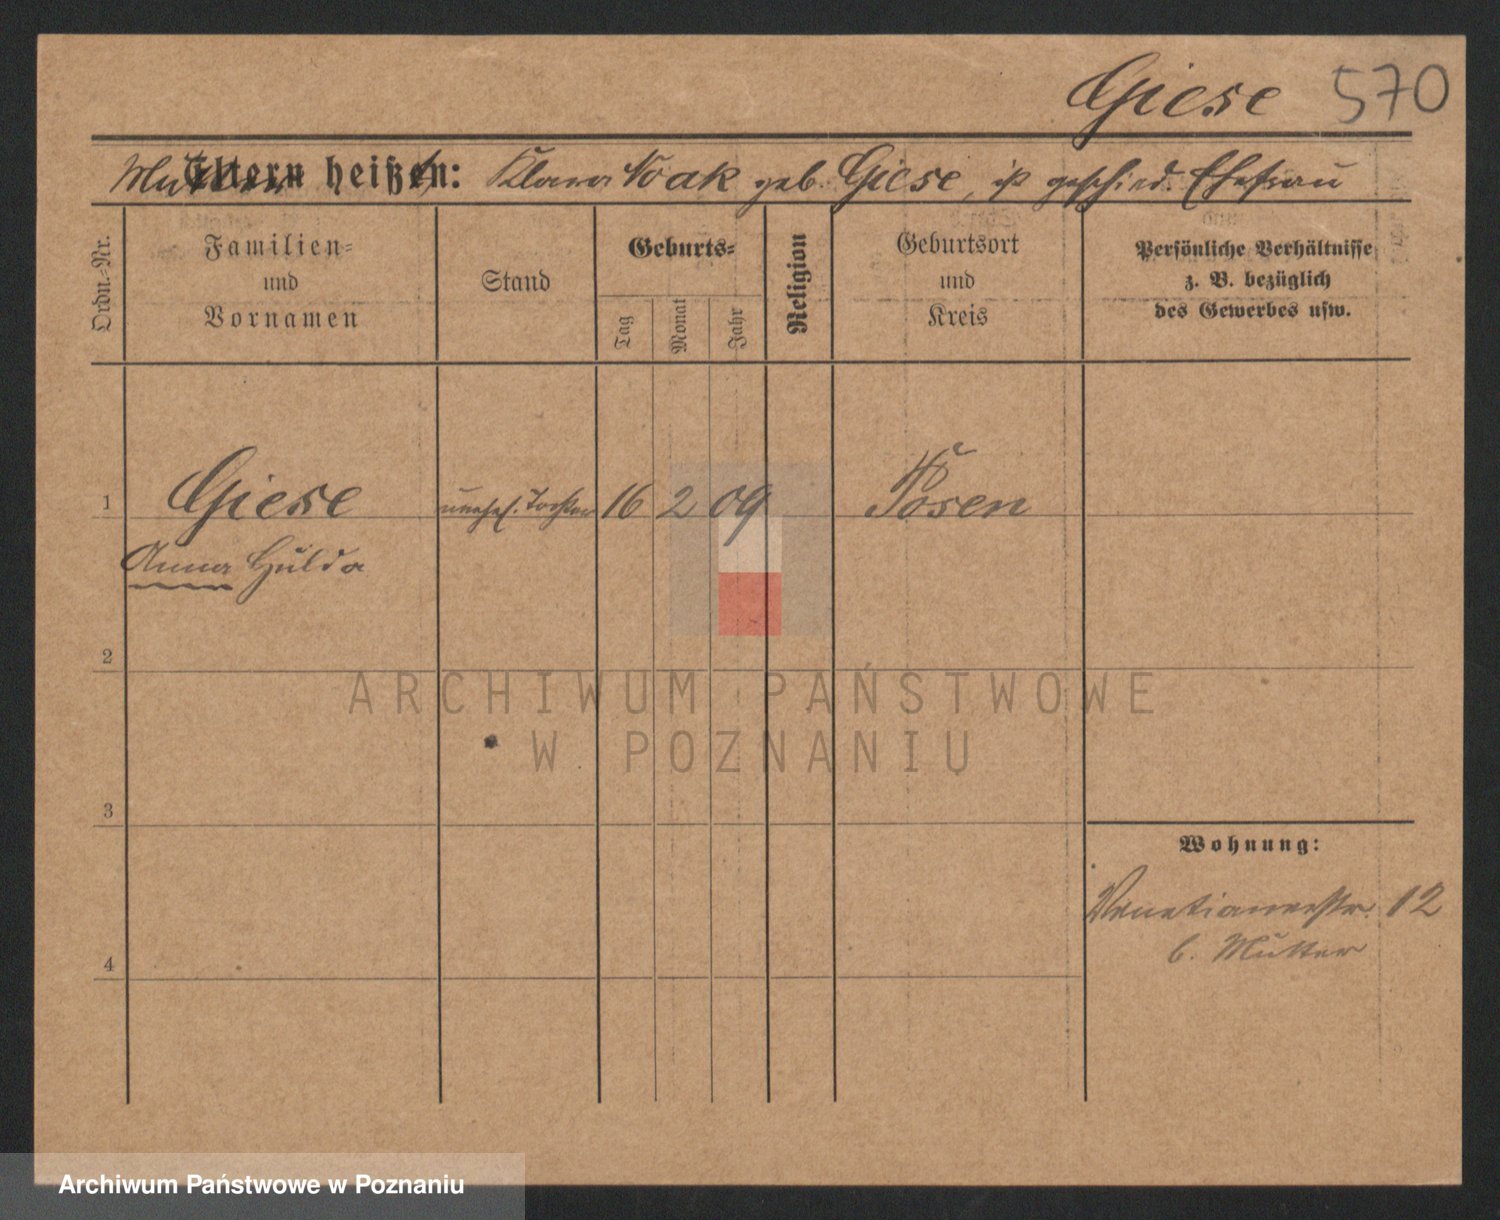 Giese 570
Mutter heißt: Klara Noak geb. Giese, ist geschied. Ehefrau
Ordn.-Nr.
Familien-
und
Vornamen
Stand
Geburts-
Tag
Monat
Jahr
Religion
Geburtsort
und
Kreis
Persönliche Verhältnisse
z. B. bezüglich
des Gewerbes usw.
1 Giese unehel. Tochter 16 2 09 Posen
Anna Hulda
2
ARCHIWUM PAŃSTWOWE
W POZNANIU
3
Wohnung:
Venetianerstr. 12
b. Mutter
4
Archiwum Państwowe w Poznaniu